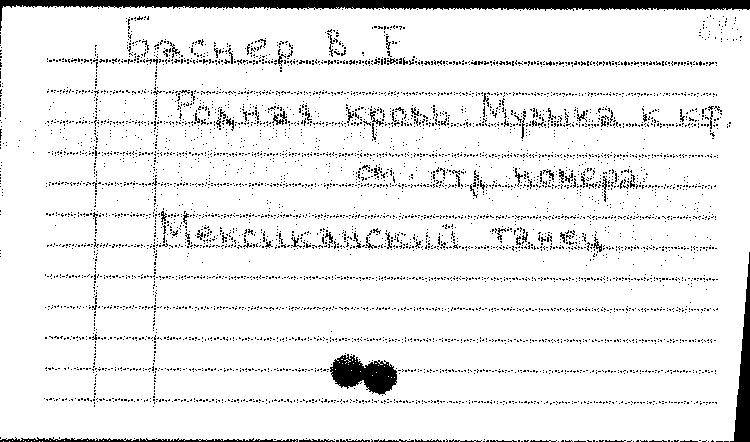 Баснер В. Е.
Родная кровь. Музыка к кф.
см. отд. номера
Мексиканский танец